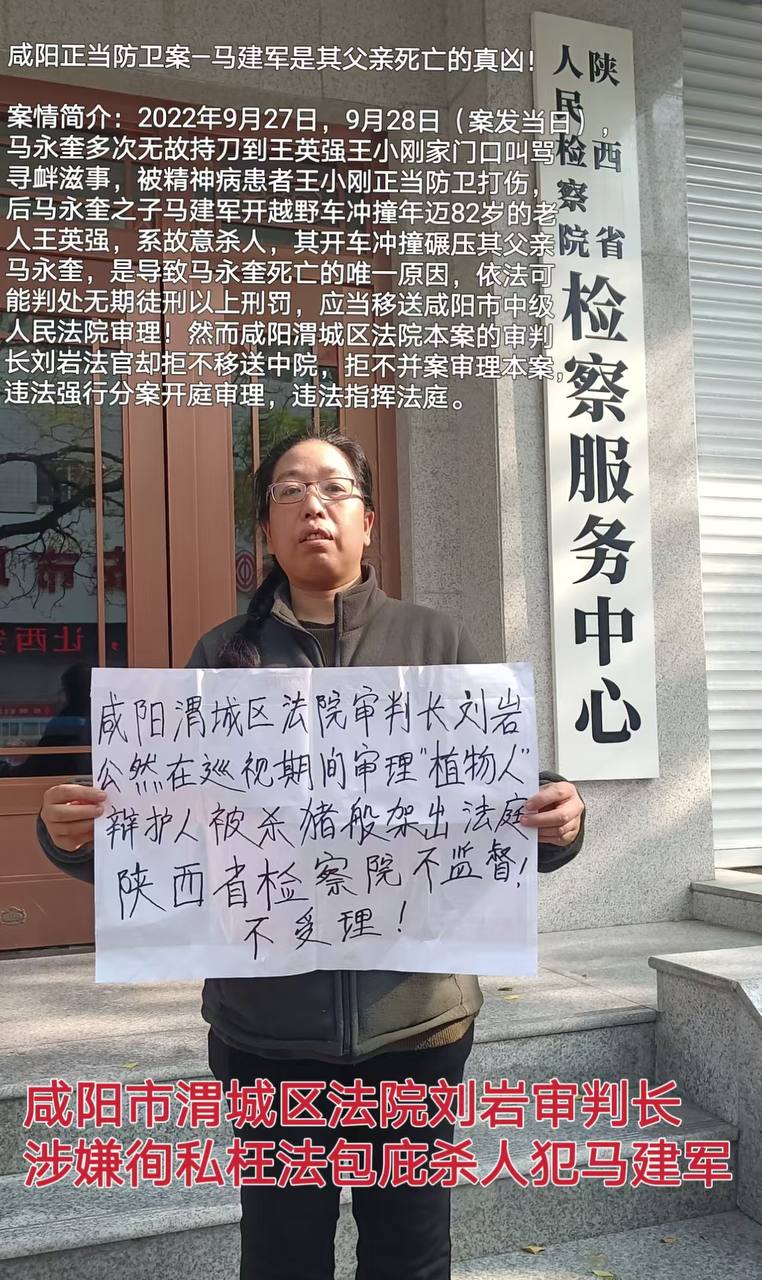 咸阳正当防卫案—马建军是其父亲死亡的真凶！
案情简介：2022年9月27日，9月28日（案发当日），
马永奎多次无故持刀到王英强王小刚家门口叫骂
寻衅滋事，被精神病患者王小刚正当防卫打伤，
后马永奎之子马建军开越野车冲撞年迈82岁的老
人王英强，系故意杀人，其开车冲撞碾压其父亲
马永奎，是导致马永奎死亡的唯一原因，依法可
能判处无期徒刑以上刑罚，应当移送咸阳市中级
人民法院审理！然而咸阳渭城区法院本案的审判
长刘岩法官却拒不移送中院，拒不并案审理本案，
违法强行分案开庭审理，违法指挥法庭。
陕西省
人民检察院
检察服务中心
让西安
咸阳渭城区法院审判长刘岩
公然在巡视期间审理"植物人"
辩护人被杀猪般架出法庭
陕西省检察院不监督！
不受理！
咸阳市渭城区法院刘岩审判长
涉嫌徇私枉法包庇杀人犯马建军